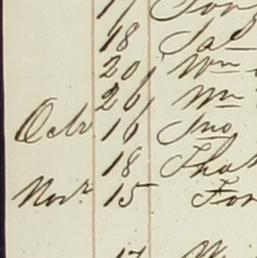 17
18 Jas
20 Wm
26 Wm
Octr 16 Jno
18 Thos
Novr 15 For
17 W